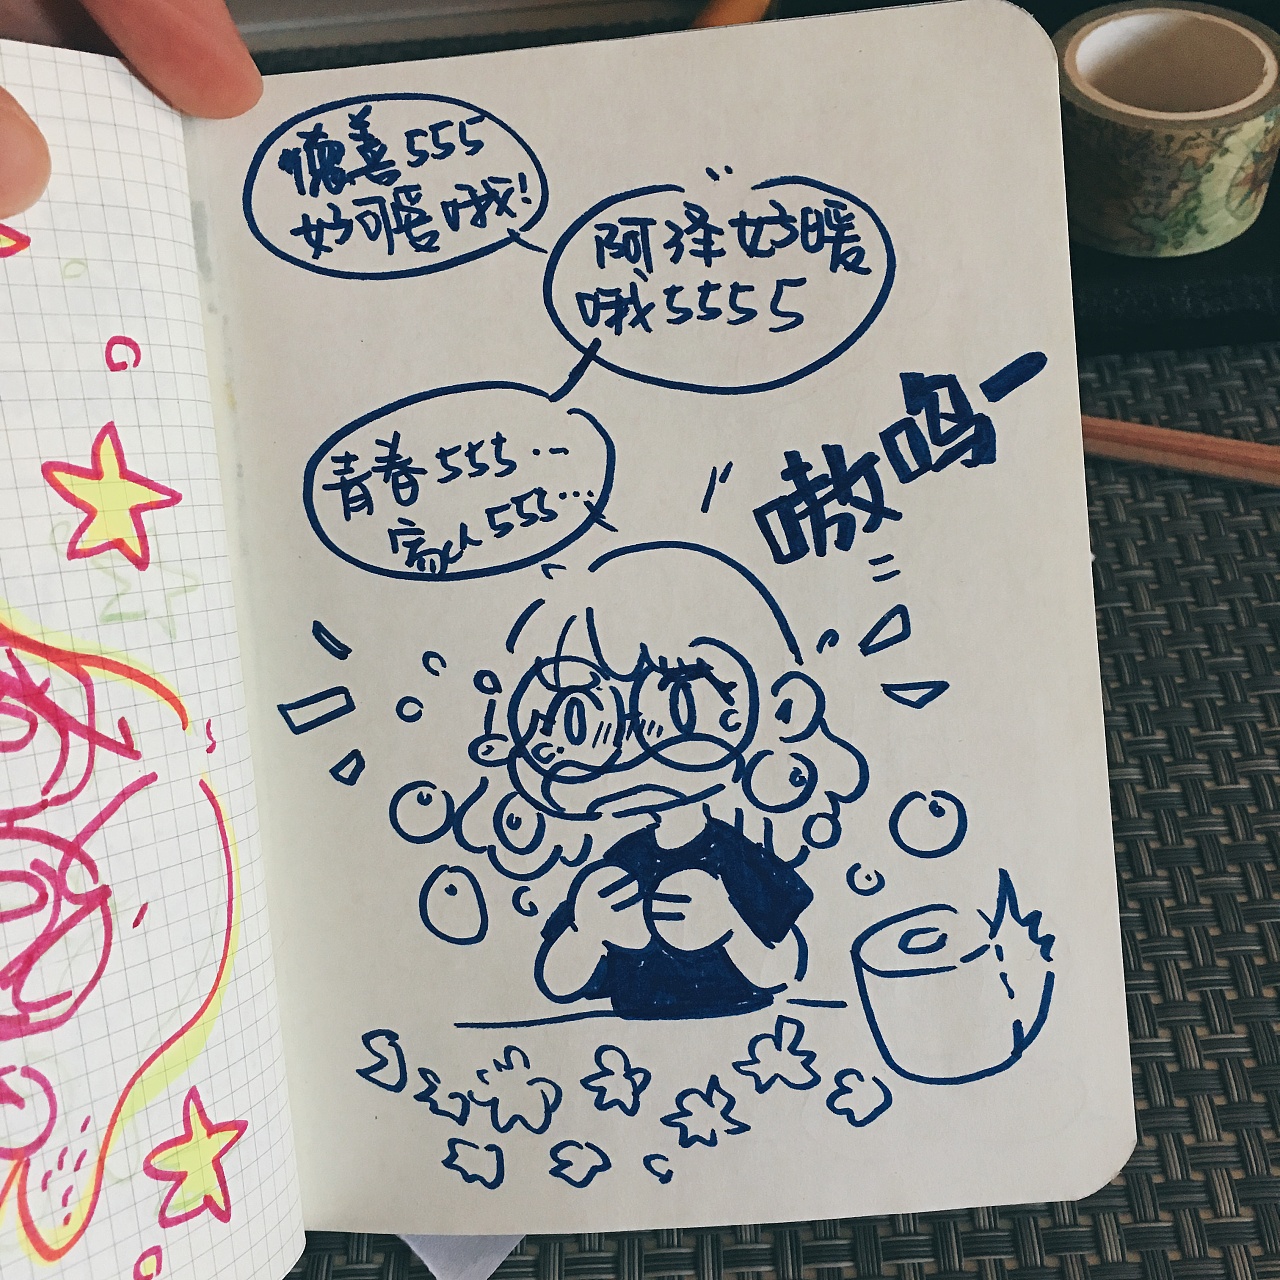 德善555
好可爱哦!
阿泽好暖
哦5555
青春555…
家人555…
嗷呜一